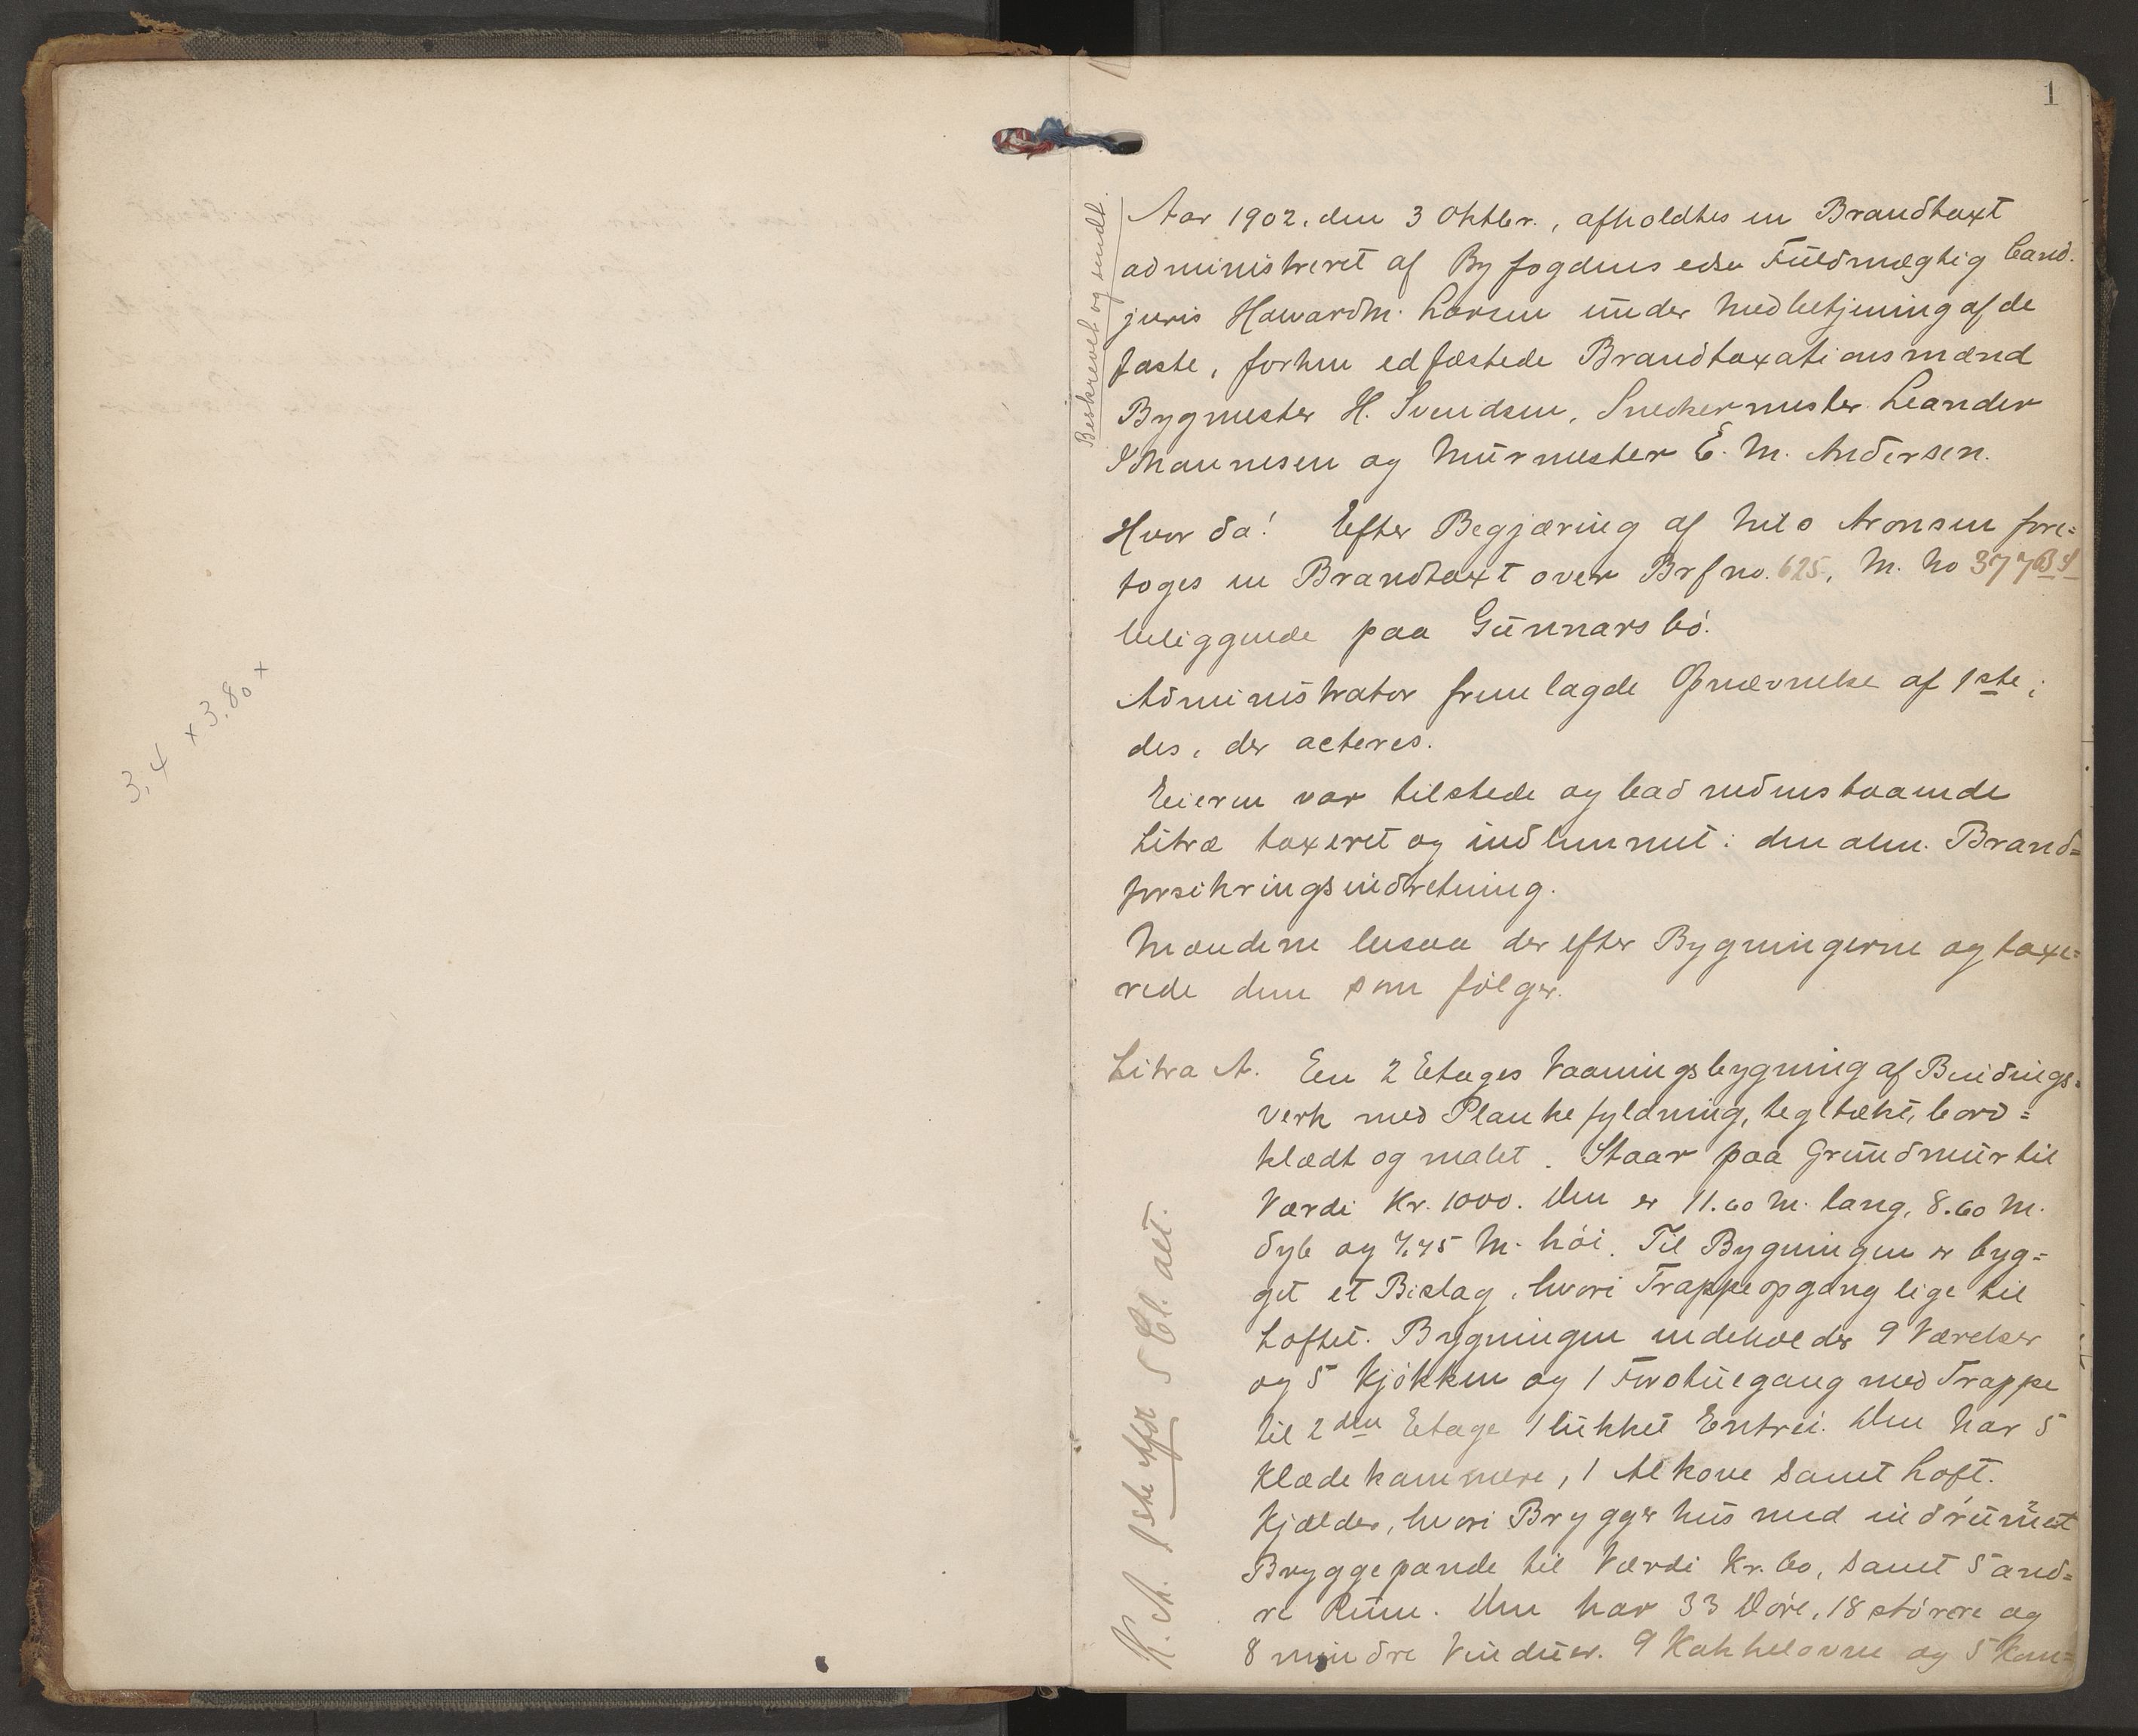 3,4 x 3.80 x
1
Beskrevet og sendt.
Aar 1902, den 3 Oktbr., afholdtes en Brandtaxt
administreret af Byfogdens edsv Fuldmægtig Cand.
juris Hawardm. Larsen under Medbetjening af de
faste, forhen edfæstede Brandtaxationsmænd
Bygmester H. Svendsen, Snedkermester Leander
Johannesen og Murmester E. M. Andersen.
Hvorda! Efter Begjæring af Nils Aronsen fore=
toges en Brandtaxt over Brfno. 625, M. No 377
beliggende paa Gunnarsbö.
Administrator fremlagde Opnævnelse af 1ste
ds, der acteres.
Eieren var tilstede og bad nedenstaaende
Litræ taxeret og indlemmet i den alm. Brand=
forsikringsindretning.
Mændene besaa derefter Bygningerne og taxe=
rede dem som fölger.
Litra A. En 2 Etages Vaaningsbygning af Bindings=
verk med Plankefyldning, tegltækt, bord=
klædt og malet. Staar paa Grundmur til
Værdi Kr. 1000. Den er 11.60 M. lang, 8.60 M.
dyb og 7.45 M. höi. Til Bygningen er byg=
get et Bislag, hvori Trappeopgang lige til
Loftet. Bygningen indeholder 9 Værelser
og 5 Kjökken og 1 Forstuegang med Trappe
til 2den Etage 1 lukket Entrei. Den har 5
Klædekammere, 1 Alkove samt Loft.
Kjælder, hvori Bryggerhus med indmuret
Bryggepande til Værdi Kr. 60, samt 5 and=
re Rum. Den har 33 Döre, 18 större og
8 mindre Vinduer. 9 Kakkelovne og 5 Kom=
K. A. 1ste Afd 5 Cl. alt.